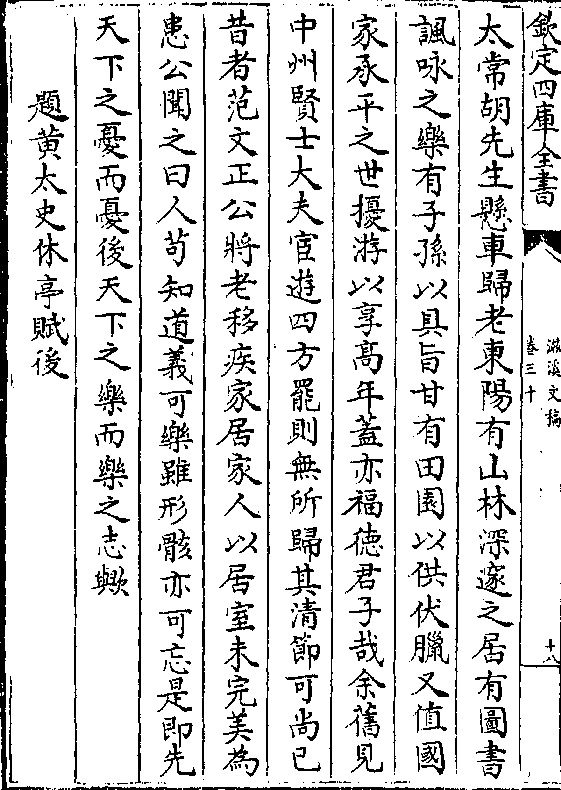 欽定四庫全書
滋溪文稿
卷三十
十八
太常胡先生懸車歸老東陽有山林深邃之居有圖書
諷咏之樂有子孫以具旨甘有田園以供伏臘又值國
家承平之世擾游以享髙年蓋亦福徳君子哉余舊見
中州賢士大夫宦遊四方罷則無所歸其清節可尚已
昔者范文正公將老移疾家居家人以居室未完美為
患公聞之曰人苟知道義可樂雖形骸亦可忘是即先
天下之憂而憂後天下之樂而樂之志歟
題黄太史休亭賦後